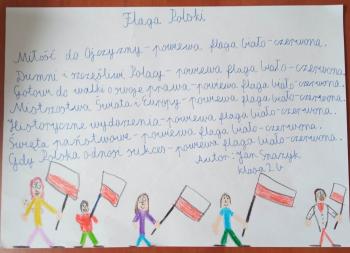 Flaga Polski
Miłość do Ojczyzny - powiewa flaga biało-czerwona.
Dumni i szczęśliwi Polacy - powiewa flaga biało-czerwona.
Gotowi do walki o swoje prawa - powiewa flaga biało-czerwona.
Mistrzostwa Świata i Europy - powiewa flaga biało-czerwona.
Historyczne wydarzenia - powiewa flaga biało-czerwona.
Święta państwowe - powiewa flaga biało-czerwona.
Gdy Polska odnosi sukces - powiewa flaga biało-czerwona.
Autor: Jan
klasa 2b